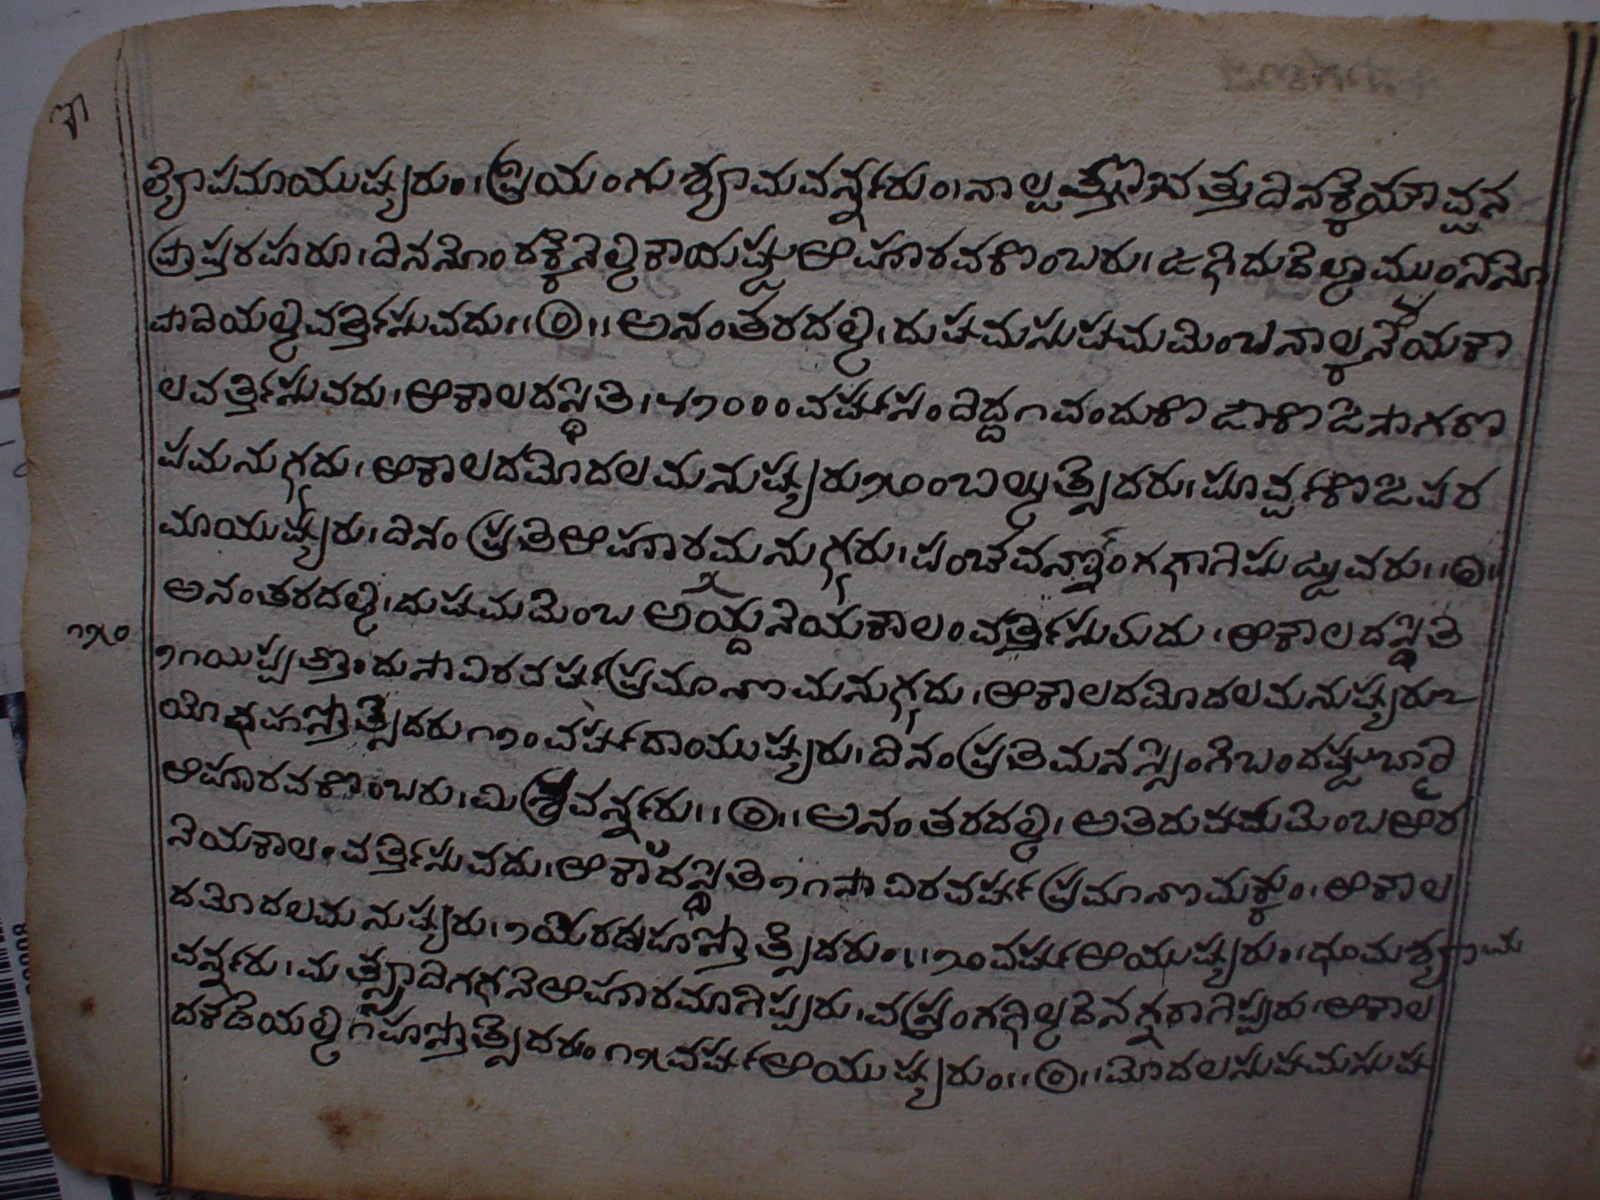 ಲ್ಯೋಪಮಾಯುಷ್ಯರುಂ। ಪ್ರಿಯಂಗುಶ್ಯಾಮವರ್ನ್ನರುಂ। ನಾಲ್ವತ್ತೊಂಬತ್ತುದಿನಕ್ಕೆಯೌವ್ವನ
ಪ್ರಾಪ್ತರಹರೂ। ದಿನನೋಂದಕ್ಕೆ ನೆಲ್ಲಿಕಾಯಷ್ಟು ಆಹಾರವಕೊಂಬರು।
ಪಾದಿಯಲ್ಲಿವರ್ತ್ತಿಸುವದು॥ಂ॥ ಅನಂತರದಲ್ಲಿ। ದುಷಮಸುಷಮಮೆಂಬನಾಲ್ಕನೆಯಕಾ
ಲವರ್ತ್ತಿಸುವದು। ಆಕಾಲದಸ್ಥಿತಿ। ೪೨೦೦೦ವರ್ಷಸಂದಿದ್ದ೧ವಂದುಕೊಟಾಕೊಟಿಸಾಗರೊ
ಪಮನುಗ್ಗದು। ಆಕಾಲದಮೊದಲಮನುಷ್ಯರು೫೦೦ಬಿಲ್ಲುತ್ಸೆದರು। ಪೂರ್ವ್ವಕೊಟಿಪರ
ಮಾಯುಷ್ಯರು। ದಿನಂಪ್ರತಿಆಹಾರಮನುಗ್ಗರು। ಪಂಚವರ್ನ್ನಾಂಗಳಾಗಿಪುಟ್ಟುವರು॥ಂ॥
ಅನಂತರದಲ್ಲಿ। ದುಷಮಮೆಂಬ ಅಯ್ದನೆಯಕಾಲಂವರ್ತ್ತಿಸುಮದು। ಆಕಾಲದಸ್ಥಿತಿ
೨೧ಯಿಪ್ಪತ್ತೊಂದುಸಾವಿರವರ್ಷಪ್ರಮಾಣಮನುಗ್ಗದು। ಆಕಾಲದಮೊದಲಮನುಷ್ಯರೂ
ಯೇಳುಹಸ್ತೋತ್ಸೆದರು೧೨೦ವರ್ಷದಾಂಯುಷ್ಯರು। ದಿನಂಪ್ರತಿಮನಸ್ಸಿಂಗೆಬಂದಷ್ಟು
ಆಹಾರವಕೊಂಬರು। ಮಿಶ್ರವರ್ನ್ನರು॥ಂ॥ ಅನಂತರದಲ್ಲಿ। ಅತಿದುಷಮಮೆಂಬಆರ
ನೆಯಕಾಲಂವರ್ತ್ತಿಸುವದು। ಆಕಾಲದಸ್ಥಿತಿ೨೧ಸಾವಿರವರ್ಷಪ್ರಮಾಣಮಕ್ಕುಂ। ಆಕಾಲ
ದಮೊದಲಮನುಷ್ಯರು। ೨ಯೆರಡುಹಸ್ತೋತ್ಸೆದರುಂ॥೨೦ವರ್ಷಆಯುಷ್ಯರುಂ। ಧೂಮಶ್ಯಾಮ
ವರ್ನ್ನರು। ಮತ್ಸ್ಯಾದಿಗಳನೆಆಹಾರಮಾಗಿಪ್ಪರು। ವಸ್ತ್ರಂಗಳಿಲ್ಲದೆನಗ್ನರಾಗಿಪ್ಪರು। ಆಕಾಲ
ದಕಡೆಯಲ್ಲಿ೧ಹಸ್ತೋತ್ಸೆದರುಂ೧೫ವರ್ಷಆಯುಷ್ಯರುಂ॥ಂ॥ಮೊದಲಸುಷಮಸುಷ